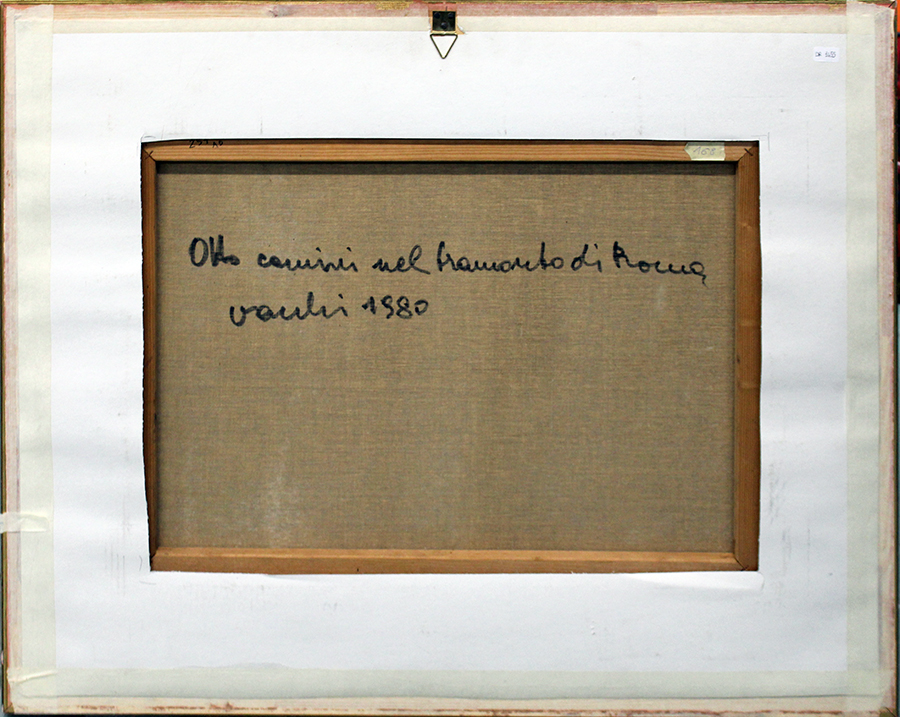 Otto camini nel tramonto di Roma
vanchi 1980